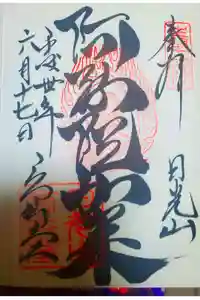 奉拝
日光山
阿弥陀如来
平成丗年
六月十七日